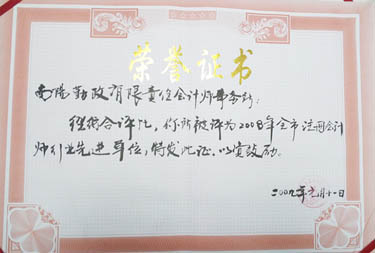 荣誉证书
南阳勤政有限责任会计师事务所：
经综合评比，你所被评为2008年全市注册会计
师行业先进单位，特发此证，以资鼓励。
二00九年元月十一日